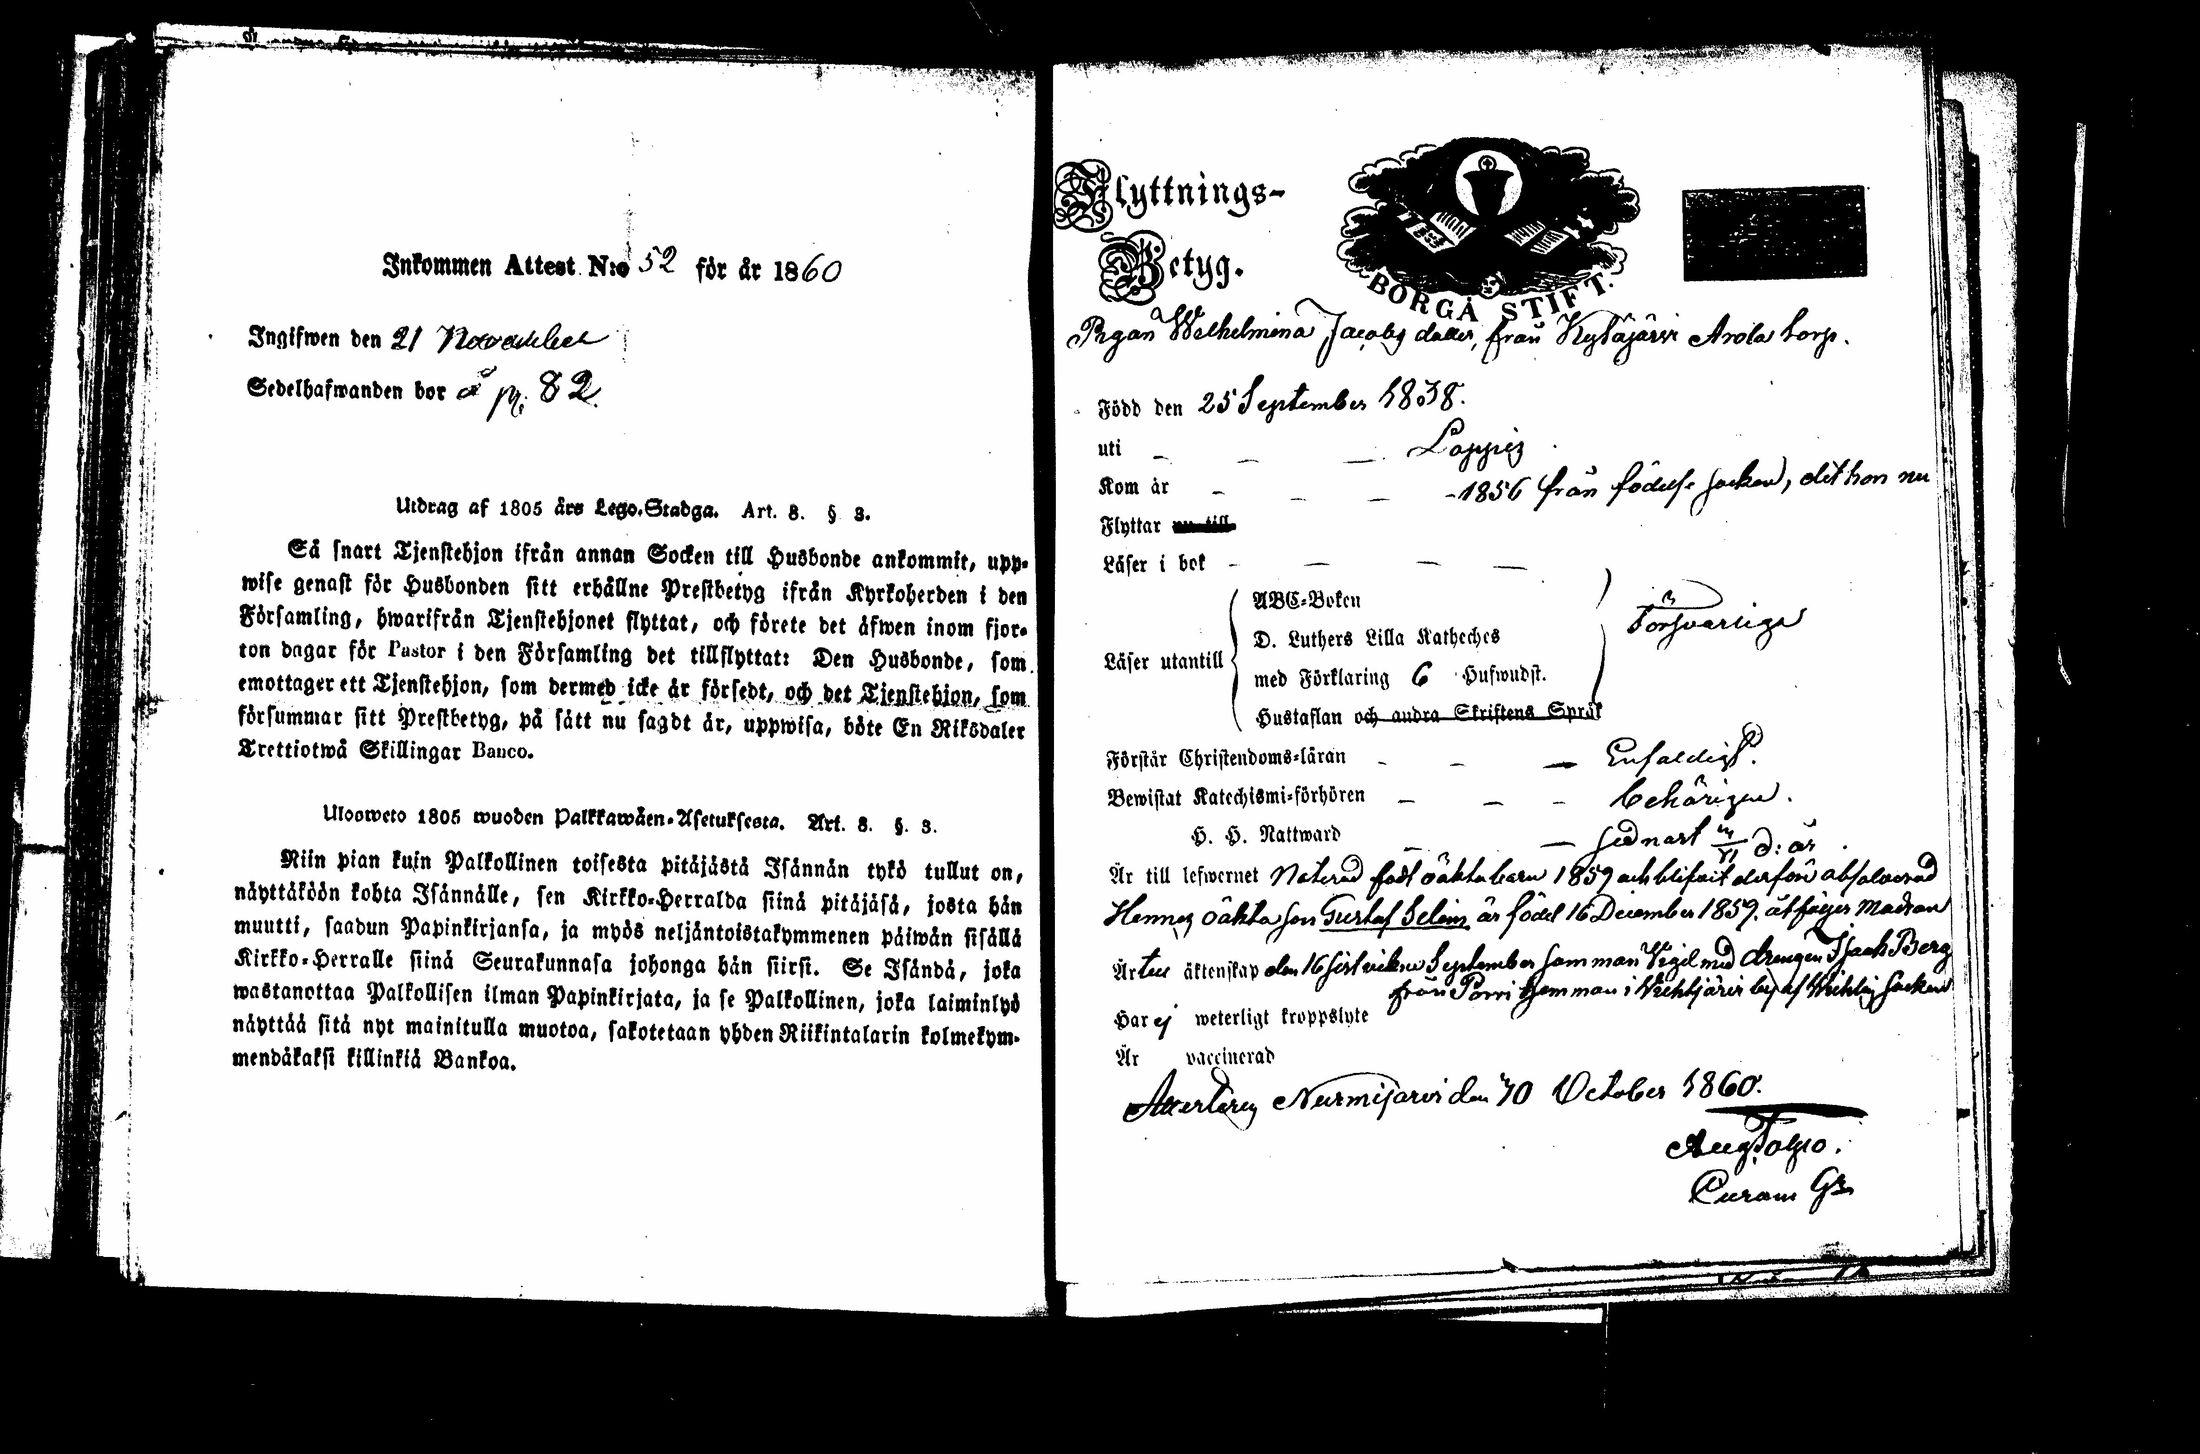 Inkommen Attest N:o 52 för år 1860
Ingifwen den 21 November
Sedelhafwanden bor å p. 82.
Utdrag af 1805 års Lego-Stadga. Art. 8. § 3.
Så snart Tjenstehjon ifrån annan Socken till Husbonde ankommit, upp-
wise genast för Husbonden sitt erhållne Prestbetyg ifrån Kyrkoherden i den
Församling, hwarifrån Tjenstehjonet flyttat, och förete det äfwen inom fjor-
ton dagar för Pastor i den Församling det tillflyttat: Den Husbonde, som
emottager ett Tjenstehjon, som dermed icke är försedt, och det Tjenstehjon, som
försummar sitt Prestbetyg, på sätt nu sagdt är, uppwisa, böte En Riksdaler
Trettiotwå Skillingar Banco.
Uloosweto 1805 wuoden Palkkawäen-Asetuksesta. Art. 8. §. 3.
Niin pian kuin Palkollinen toisesta pitäjästä Isännän tykö tullut on,
näyttäköön kohta Isännälle, sen Kirkko-Herralda siinä pitäjäsä, josta hän
muutti, saadun Papinkirjansa, ja myös neljäntoistakymmenen päiwän sisällä
Kirkko-Herralle siinä Seurakunnasa johonga hän siirsi. Se Isändä, joka
wastanottaa Palkollisen ilman Papinkirjata, ja se Palkollinen, joka laiminlyö
näyttää sitä nyt mainitulla muotoa, sakotetaan yhden Riikintalarin kolmekym-
mendäkaksi killinkiä Bankoa.
Flyttnings-
Betyg.
BORGÅ STIFT.
Pigan Wilhelmina Jacobs dotter, från Kytäjärvi Arola torp.
Född den 25 September 1838.
uti Loppis
Kom år 1856 från födelse socken, dit hon nu
Flyttar nu till
Läser i bok
Läser utantill
ABC-Boken
D. Luthers Lilla Katheches
med Förklaring 6 Hufwudst.
Hustaflan och andra Skriftens Språk
Försvarliga
Förstår Christendoms-läran Enfaldigt.
Bewistat Katechismi-förhören behörigen.
H. H. Nattward sednast d: år
Är till lefwernet födt oäkta barn 1859 och blifvit derföre absolverad
Hennes oäkta son Gustaf är född 16 December 1859. åtföljer Modren
Är äktenskap den 16 sistvikne September samman Vigd med drengen Isaak Berg
från i by af socken
Har ej weterligt kroppslyte
Är vaccinerad
Attesteras Nurmijärvi den 10 October 1860.
Aug.